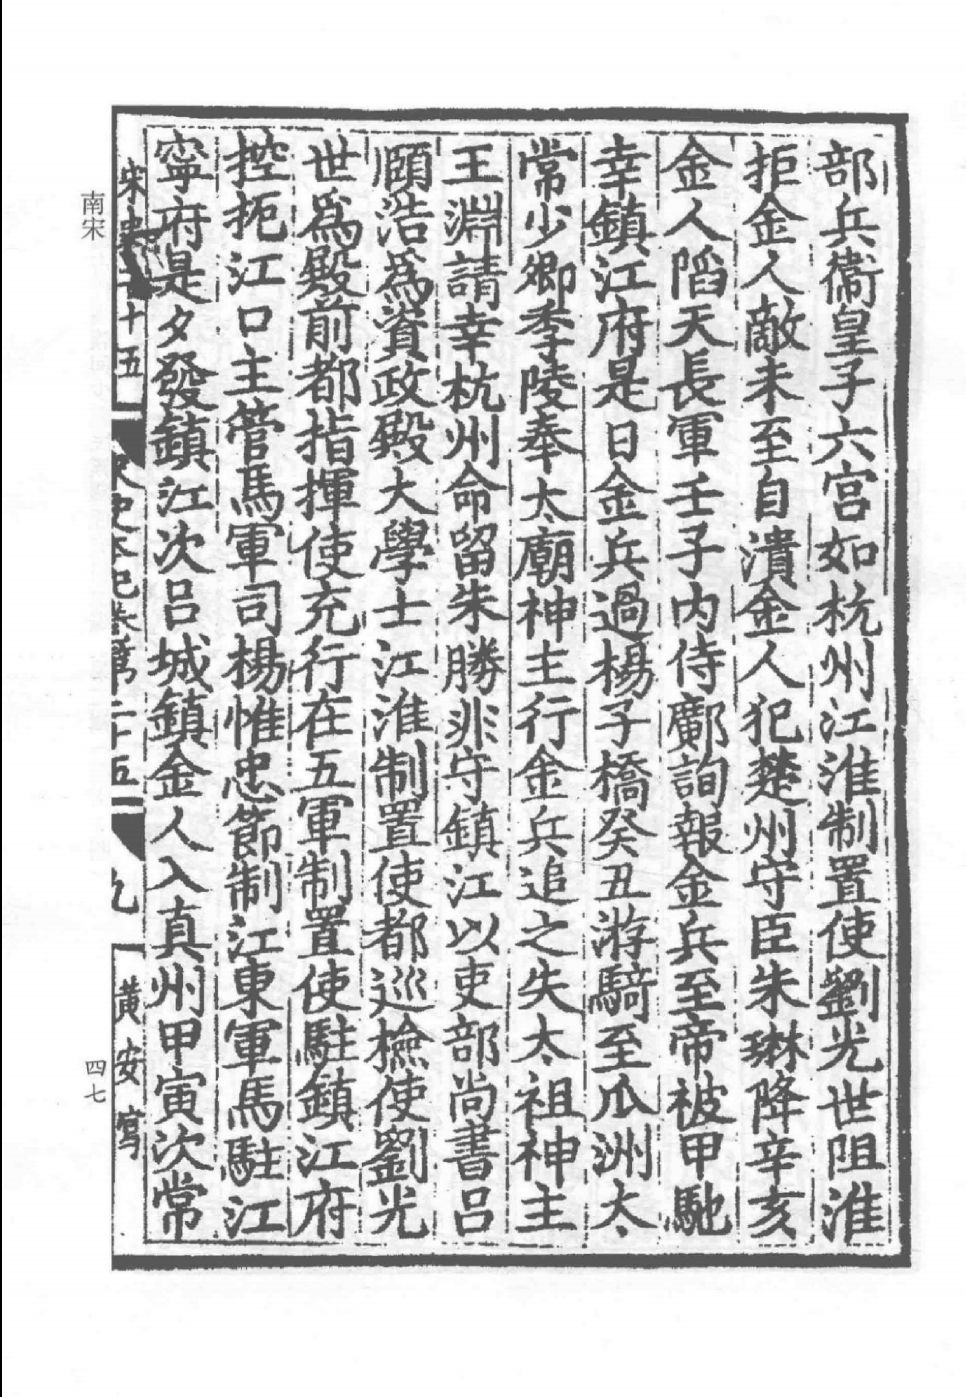 部兵衞皇子六宫如杭州江淮制置使劉光世阻淮
拒金人敵未至自潰金人犯楚州守臣朱琳降辛亥
金人陷天長軍壬子内侍鄺詢報金兵至帝被甲馳
幸鎮江府是日金兵過楊子橋癸丑游騎至瓜洲太
常少卿季陵奉太廟神主行金兵追之失太祖神主
王淵請幸杭州命留朱勝非守鎮江以吏部尚書吕
頤浩爲資政殿大學士江淮制置使都巡檢使劉光
世爲殿前都指揮使充行在五軍制置使駐鎮江府
控扼江口主管馬軍司楊惟忠節制江東軍馬駐江
寧府是夕發鎮江次吕城鎮金人入真州甲寅次常
宋史二十五
宋史本紀卷第二十五
九
黄安寫
南宋
四七